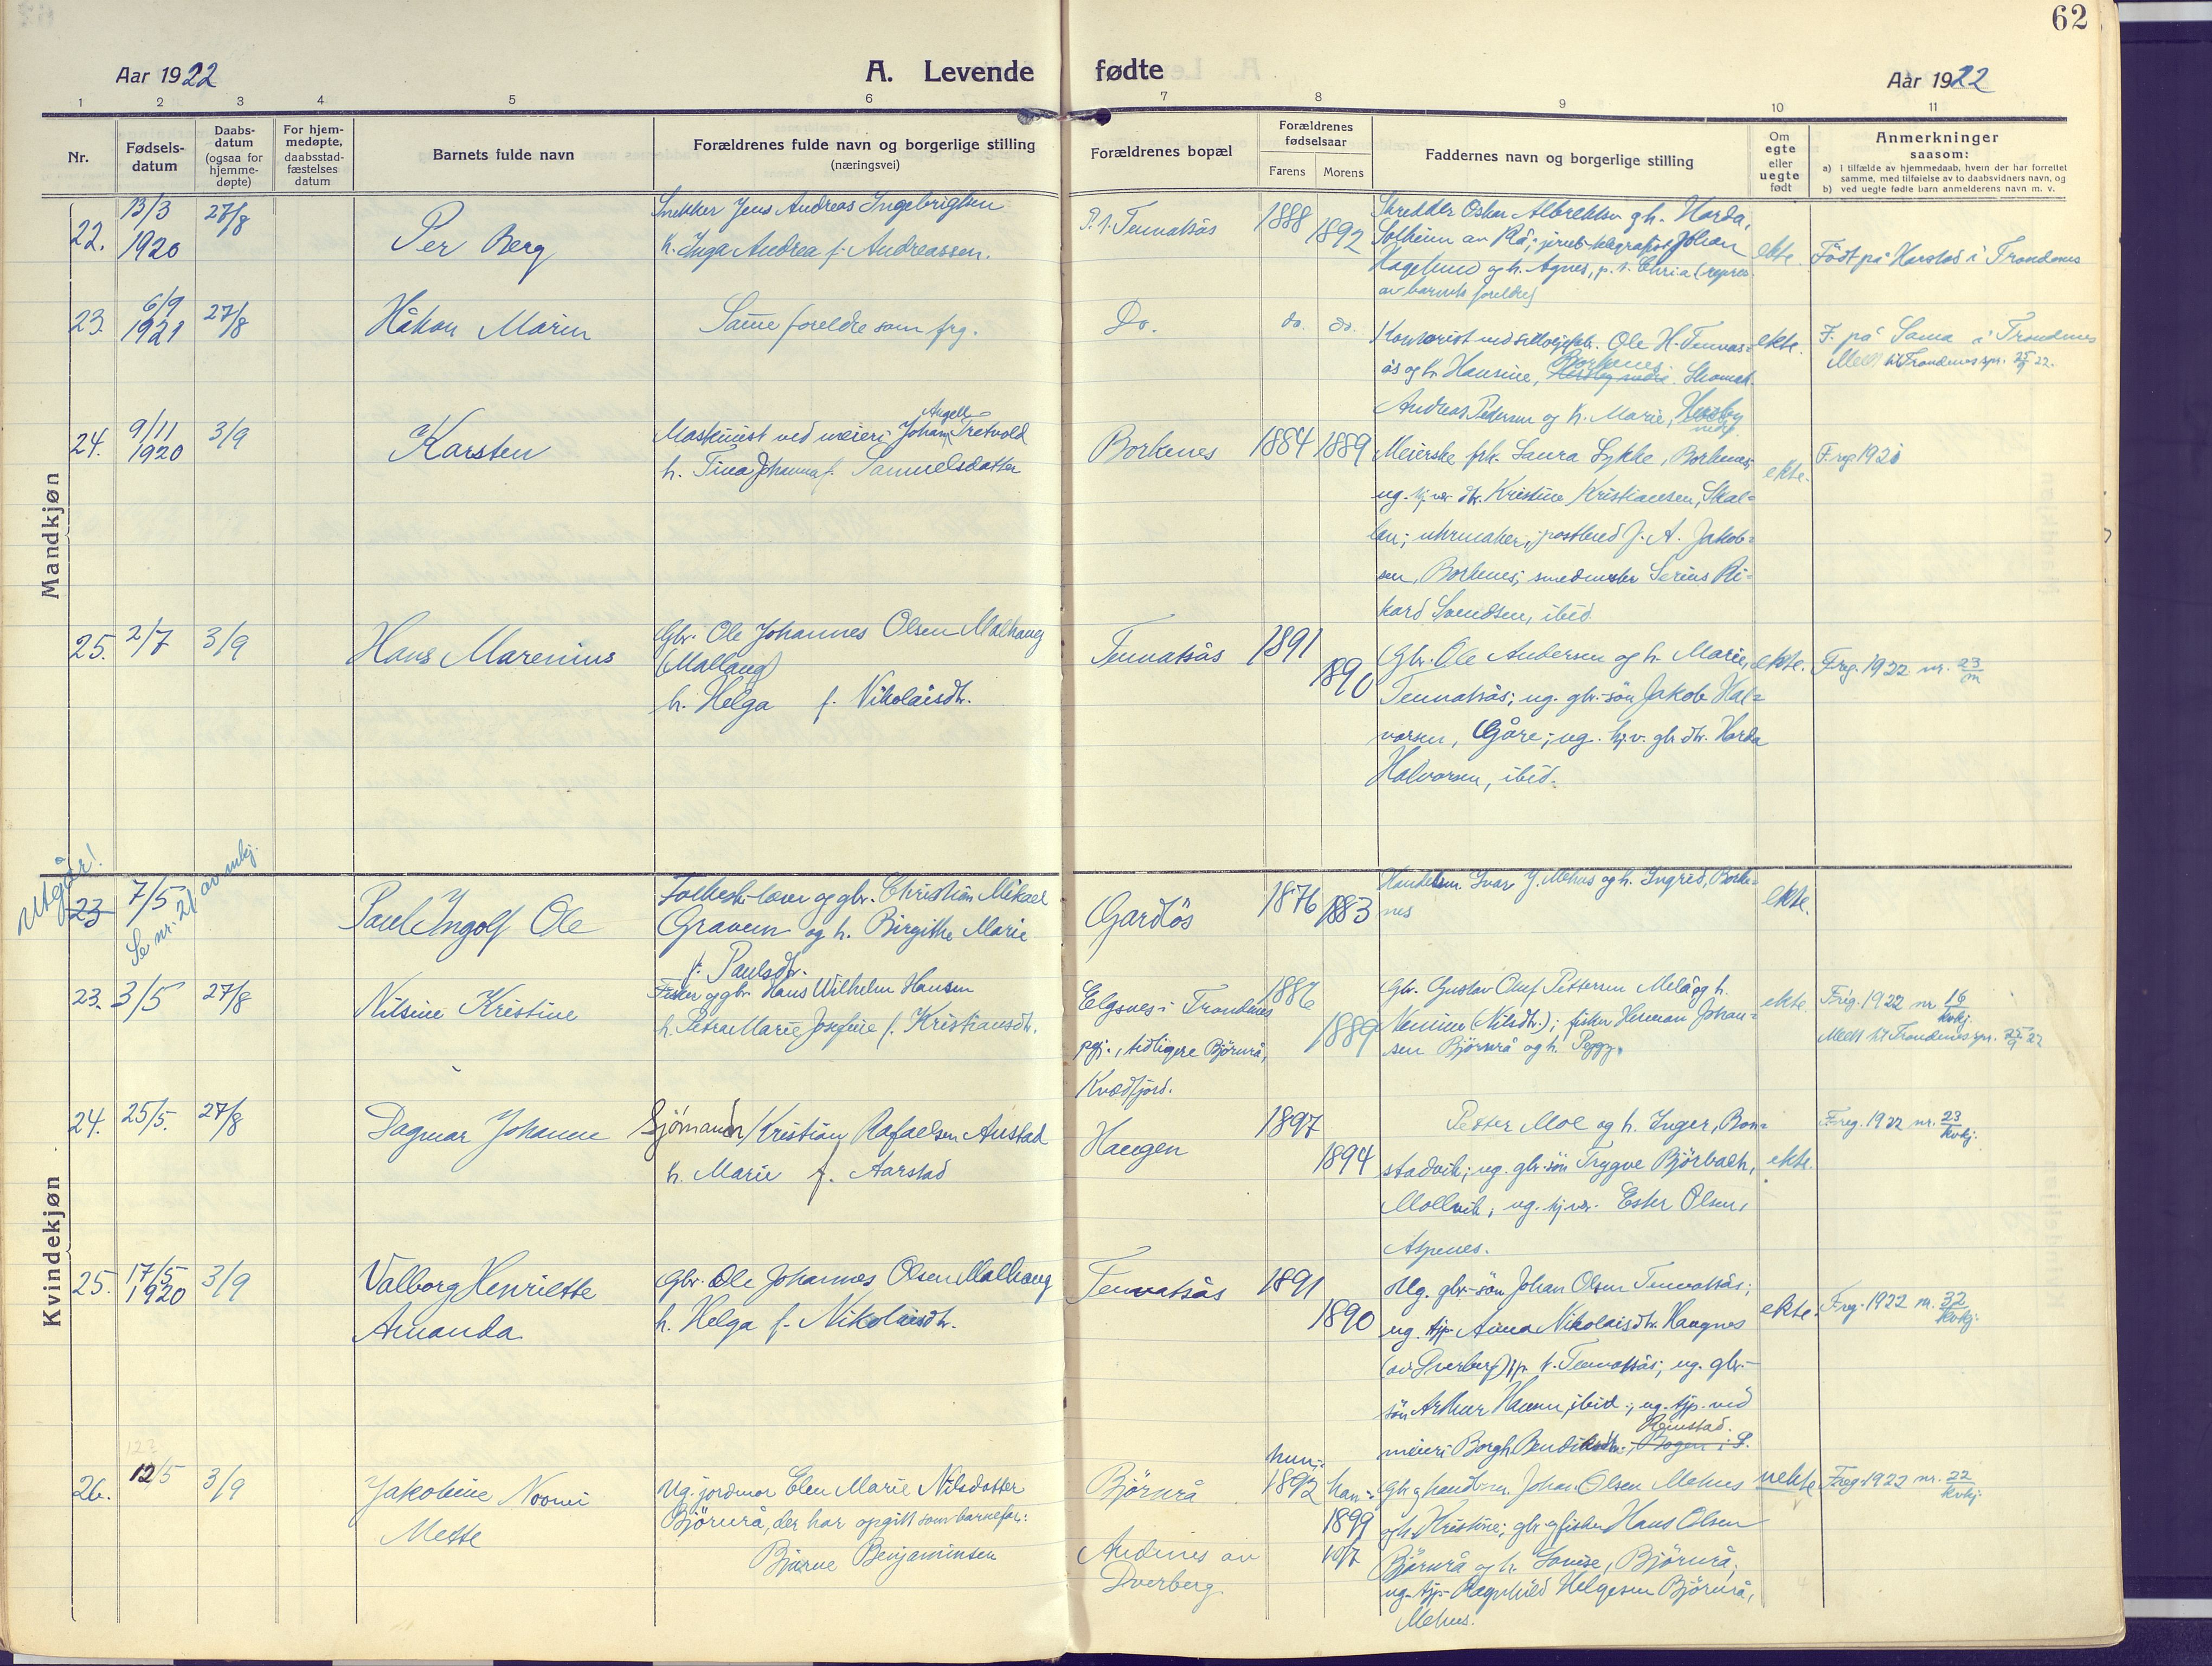 62
Aar 1922
A. Levende fødte
Aar 1922
1 2 3 4 5 6 7 8 9 10 11
Nr.
Fødsels-
datum
Daabs-
datum
(ogsaa for
hjemme-
døpte)
For hjem-
medøpte,
daabsstad-
fæstelses
datum
Barnets fulde navn
Forældrenes fulde navn og borgerlige stilling
(næringsvei)
Forældrenes bopæl
Forældrenes
fødselsaar
Farens Morens
Faddernes navn og borgerlige stilling
Om
egte
eller
uegte
født
Anmerkninger
saasom:
a) i tilfælde av hjemmedaab, hvem der har forrettet
samme, med tilføielse av to daabsvidners navn, og
b) ved uegte fødte barn anmelderens navn m. v.
Mandkjøn
22.
13/3
1920
27/8
Per Berg
Snekker Jens Andreas Ingebrigtsen
h. Inga Andrea f. Andreassen.
P. t. Tennatsås
1888
1892
Skredder Oskar Albrektsen g h. Horda,
Solheim av Rå; jernb.telegrafist Johan
Hagelund og h. Agnes, p. t.
av barnets foreldre)
ekte.
Født på Harstad i Trondenes
23.
6/9
1921
27/8
Håkon Marin
Same foreldre som frg.
Do.
do. do.
Kontorist ved Ole H. Tennas=
ås og h. Hansine, Borkenes Skomak.
Andreas Pedersen og h. Marie, Hesseby
nedr.
ekte.
F. på Sama i Trondenes
Meldt til Trondenes spr. 25/9 22.
24.
9/11
1920
3/9
Karsten
Maskinist ved meieri Johan Angell Tretvold
h. Tina Johanna f. Samuelsdatter
Borkenes
1884 1889
Meierske frk. Laura Lykke, Borkenes;
ug. hj.vær. dtr. Kristine Kristiansen, Skal=
lan; uhrmaker, postbud J. A. Jakob=
sen, Borkenes; smedmester Serius Ri=
kard Svendsen, ibid.
ekte.
F. reg 1920
25.
2/7
3/9
Hans Marenius
Gbr. Ole Johannes Olsen Malhaug
(Mallaug)
h. Helga f. Nikolaisdtr.
Tennatsås
1891
1890
Gbr. Ole Andersen og h. Marie,
Tennatsås; ug. gbr-søn Jakob Hal=
vorsen, Gåre; ug. hj.v. gbr dtr. Horda
Halvorsen, ibid.
ekte.
F.reg. 1922 nr. 23/m
Kvindekjøn
Utgår!
23
7/5
Se nr. 21 av mkj.
Paul Ingolf Ole
Folkesk-lærer og gbr. Christian Mikael
Gravem og h. Birgithe Marie
f. Paulsdtr.
Gardløs
1876 1883
Handelsm. Ivar J. Mehus og h. Ingrid, Borke=
nes
ekte.
23.
3/5
27/8
Nilsine Kristine
Fisker og gbr. Hans Wilhelm Hansen
h. Petra Marie Josefine f. Kristiansdtr.
Elgsnes i Trondenes
pgj., tidligere Bjørnrå,
Kvædfjord.
1886
1889
Gbr. Gustav Oluf Pettersen Melå og h.
(Nilsdtr.); fisker Herman Johan=
sen Bjørnrå og h. Peggy.
ekte.
F.reg. 1922 nr 16/kvkj.
Meldt til Trondenes spr. 25/9 22
24.
25/5.
27/8
Dagmar Johanne
Sjømand Kristian Rafaelsen Austad
h. Marie f. Aarstad
Haugen
1897
1894
Petter Moe og h. Inger, Bon=
stadvik; ug. gbr-søn Trygve Bjørbach,
Mollvik; ug. hj.vær. Ester Olsen,
Aspenes.
ekte.
F.reg. 1922 nr. 23/kvkj.
25.
17/5
1920
3/9
Valborg Henriette
Amanda
Gbr. Ole Johannes Olsen Malhaug
h. Helga f. Nikolaisdtr.
Tennatsås
1891
1890
Ug. gbr-søn Johan Olsen Tennatsås;
ug. tjp. Anna Nikolaisdtr. Haugnes
(av Dverberg) p. t. Tennatsås; ug. gbr-
søn Arthur Hansen, ibid.; ug. tjp. ved
Reinstad.
meieri Borgh. Bendiksdtr., Bogen i S.
ekte.
F.reg. 1922 nr. 32/kvkj.
26.
122
12/5
3/9
Jakobine Noomi
Mette
Ug. jordmor Elen Marie Nilsdatter
Bjørnrå, der har opgitt som barnefar:
Bjarne Benjaminsen
Bjørnrå
Andenes av
Dverberg
hun:
1892
han:
1899
10/7
Gbr. g handelsm. Johan Olsen Mehus
og h. Kristine; gbr. g fisker Hans Olsen
Bjørnrå og h. Lovise, Bjørnrå;
ug. tjp. Ragnhild Helgesen Bjørnrå,
Mehus.
uekte
F.reg. 1922 nr. 22/kvkj